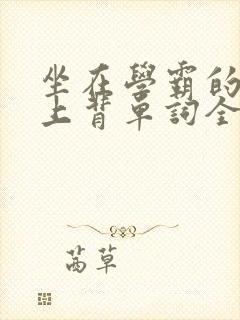 坐在學霸的
上背單詞全
茜草